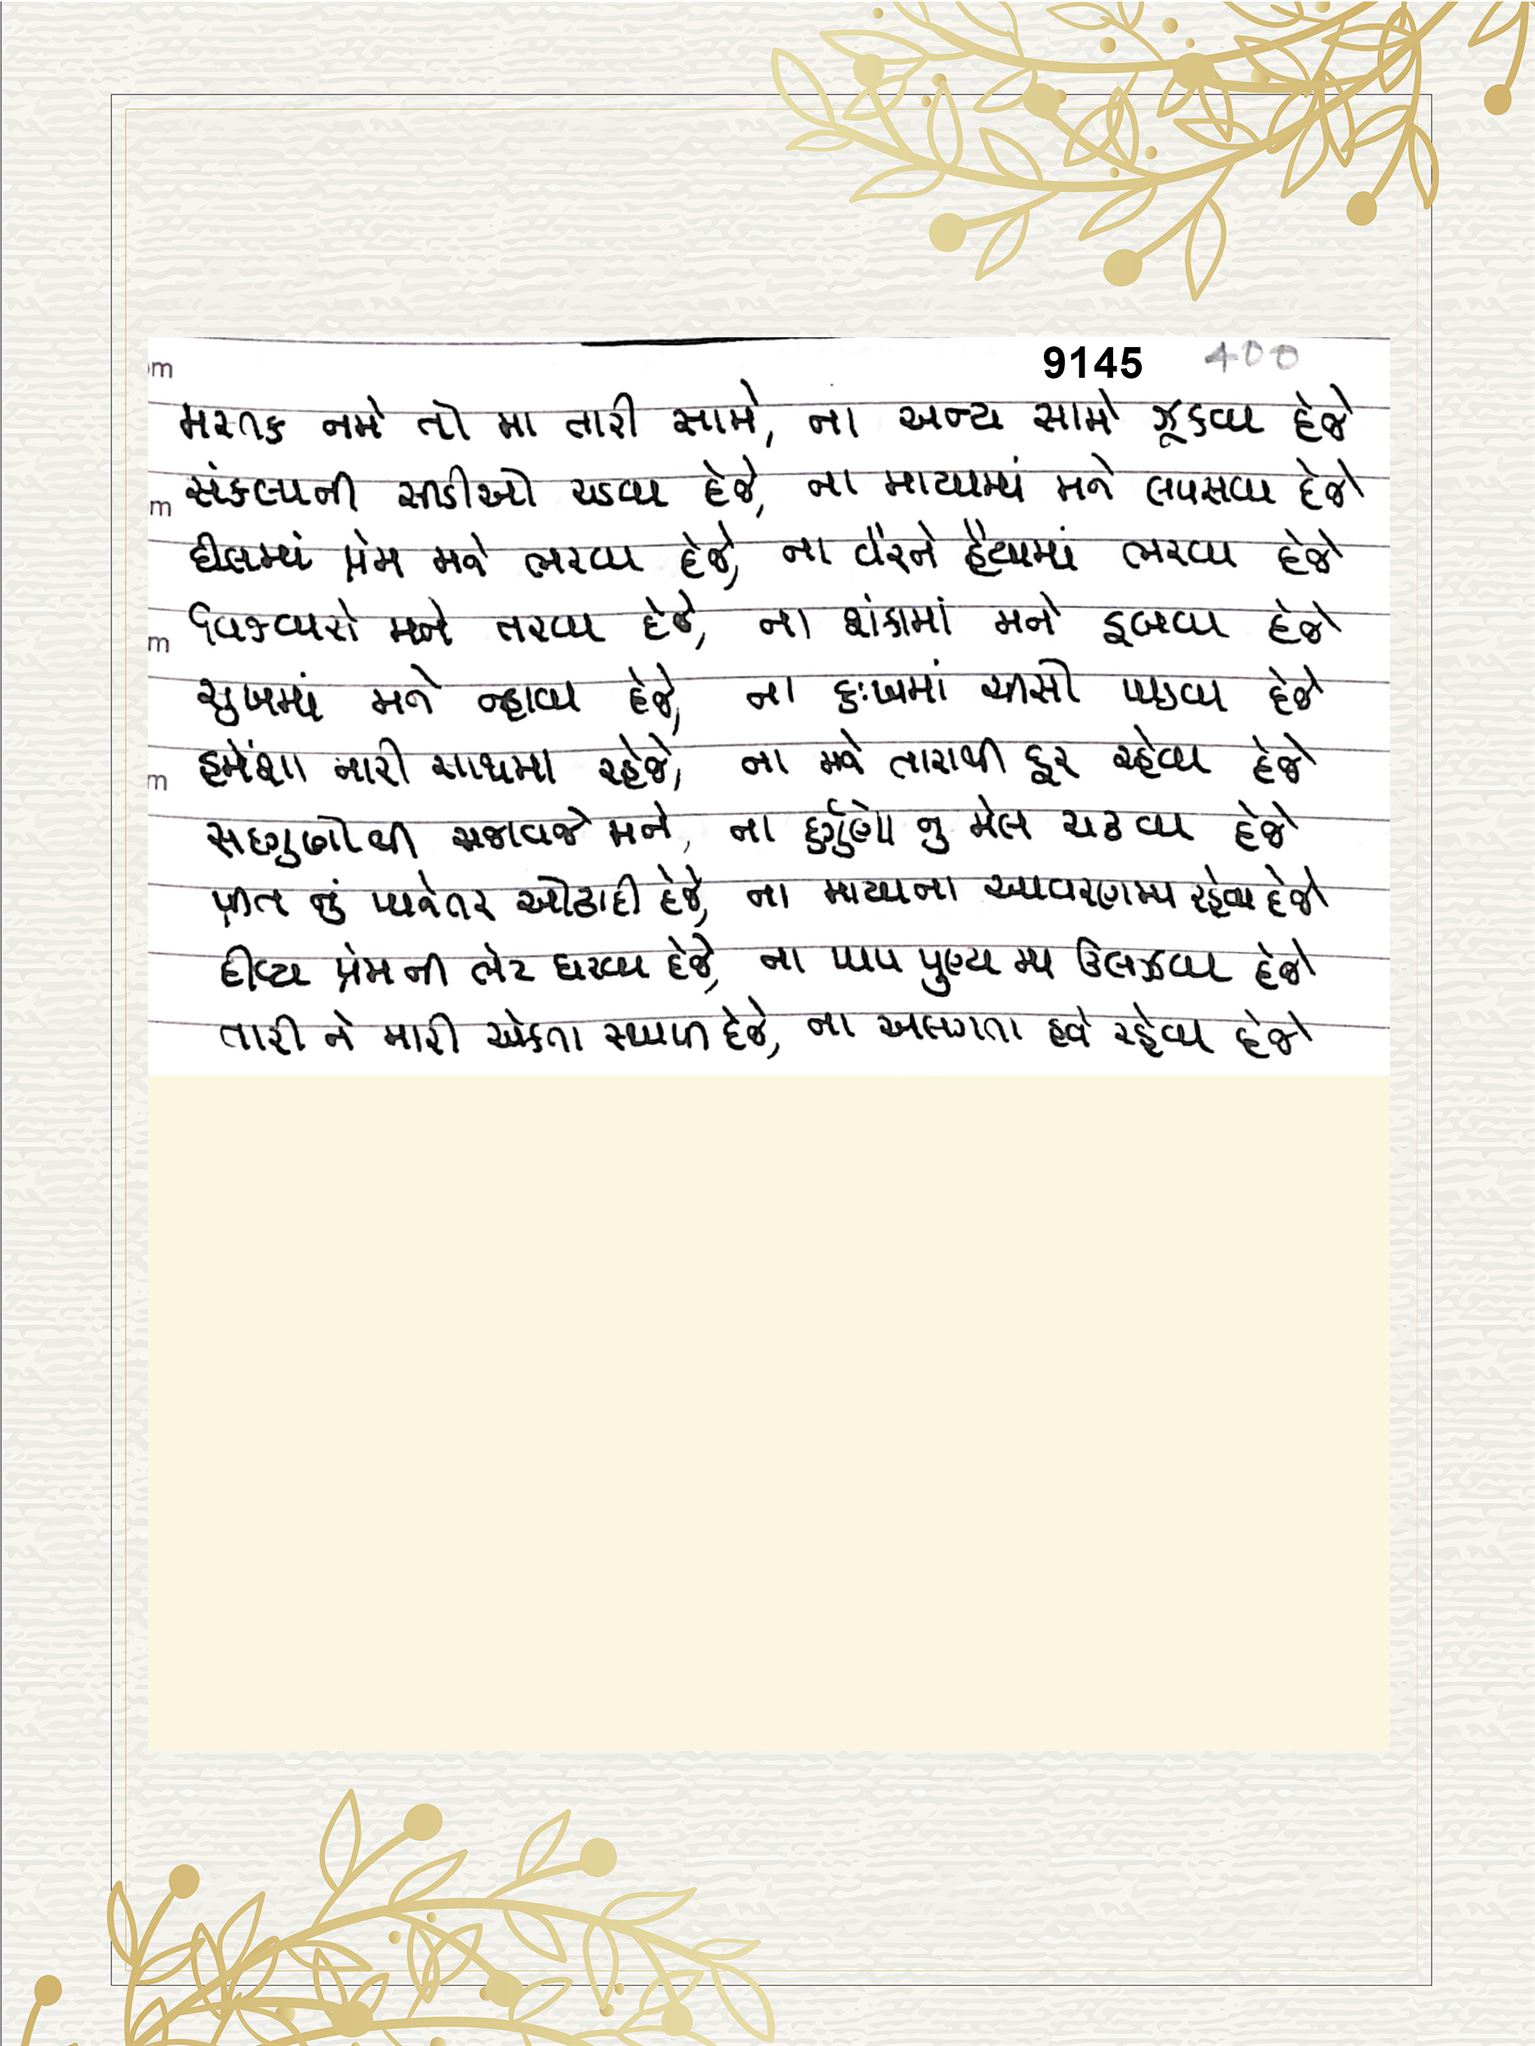 9145 400
om
મસ્તક નમે તો મા તારી સામે, ના અન્ય સામે ઝૂકવા દેજે
m
સંકલ્પની સીડીઓ ચડવા દેજે, ના માયામાં મને લપસવા દેજે
દીલમાં પ્રેમ મને ભરવા દેજે, ના વૈરને હૈયામાં ભરવા દેજે
m
મને તરવા દેજે, ના શંકામાં મને ડૂબવા દેજે
સુખમાં મને ન્હાવા દેજે, ના દુઃખમાં ચીસો પાડવા દેજે
m
હમેંશા તારી સાથમા રહેજે, ના મને તારાથી દૂર રહેવા દેજે
સદગુણોથી સજાવજે મને, ના દુર્ગુણો નુ મેલ ચઢવા દેજે
પ્રીત નું પાનેતર ઓઢાદી દેજે, ના માયાના આવરણમા રહેવા દેજે
દીવ્ય પ્રેમ ની ભેટ ધરવા દેજે, ના પાપ પુણ્ય મા ઉલઝવા દેજે
તારી ને મારી એકતા સ્થાપી દેજે, ના અલગતા હવે રહેવા દેજે